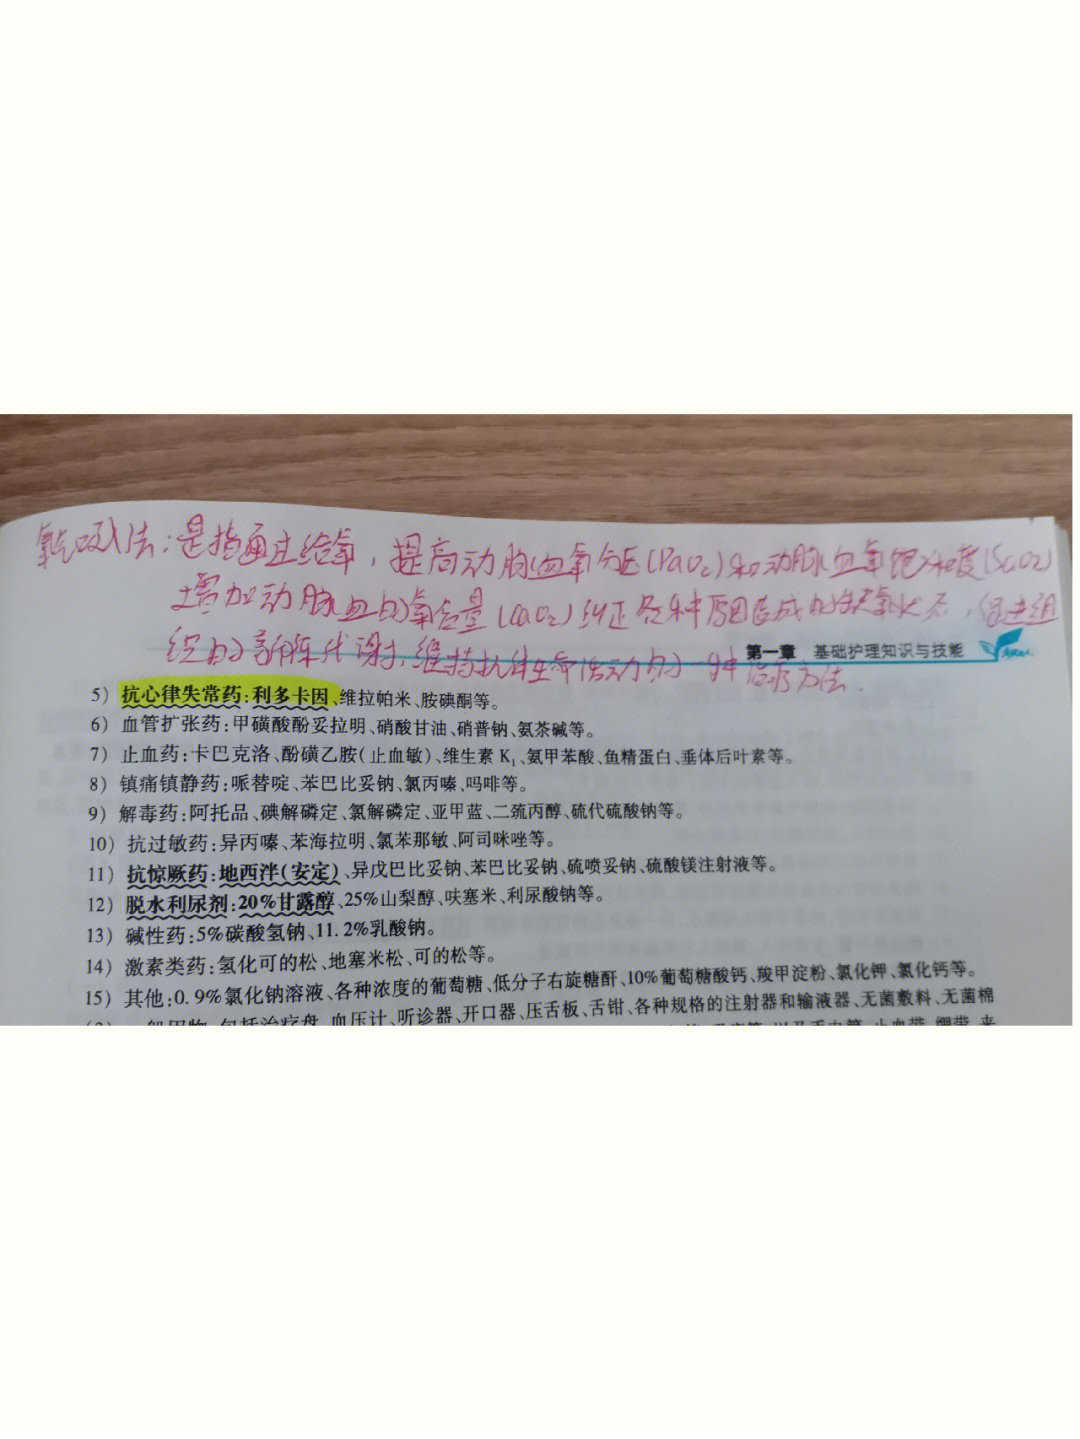 氧气吸入法：是指通过给氧，提高动脉血氧分压(PaO₂)和动脉血氧饱和度(SaO₂)
增加动脉血的氧含量(CaO₂)纠正各种原因造成的缺氧状态，促进组
织的新陈代谢，维持机体生命活动的一种治疗方法.
第一章 基础护理知识与技能
5）抗心律失常药:利多卡因、维拉帕米、胺碘酮等。
6）血管扩张药:甲磺酸酚妥拉明、硝酸甘油、硝普钠、氨茶碱等。
7）止血药:卡巴克洛、酚磺乙胺(止血敏)、维生素 K₁、氨甲苯酸、鱼精蛋白、垂体后叶素等。
8）镇痛镇静药:哌替啶、苯巴比妥钠、氯丙嗪、吗啡等。
9）解毒药:阿托品、碘解磷定、氯解磷定、亚甲蓝、二巯丙醇、硫代硫酸钠等。
10）抗过敏药:异丙嗪、苯海拉明、氯苯那敏、阿司咪唑等。
11）抗惊厥药:地西泮(安定)、异戊巴比妥钠、苯巴比妥钠、硫喷妥钠、硫酸镁注射液等。
12）脱水利尿剂:20%甘露醇、25%山梨醇、呋塞米、利尿酸钠等。
13）碱性药:5%碳酸氢钠、11.2%乳酸钠。
14）激素类药:氢化可的松、地塞米松、可的松等。
15）其他:0.9%氯化钠溶液、各种浓度的葡萄糖、低分子右旋糖酐、10%葡萄糖酸钙、羧甲淀粉、氯化钾、氯化钙等。
包括治疗盘、血压计、听诊器、开口器、压舌板、舌钳、各种规格的注射器和输液器、无菌敷料、无菌棉